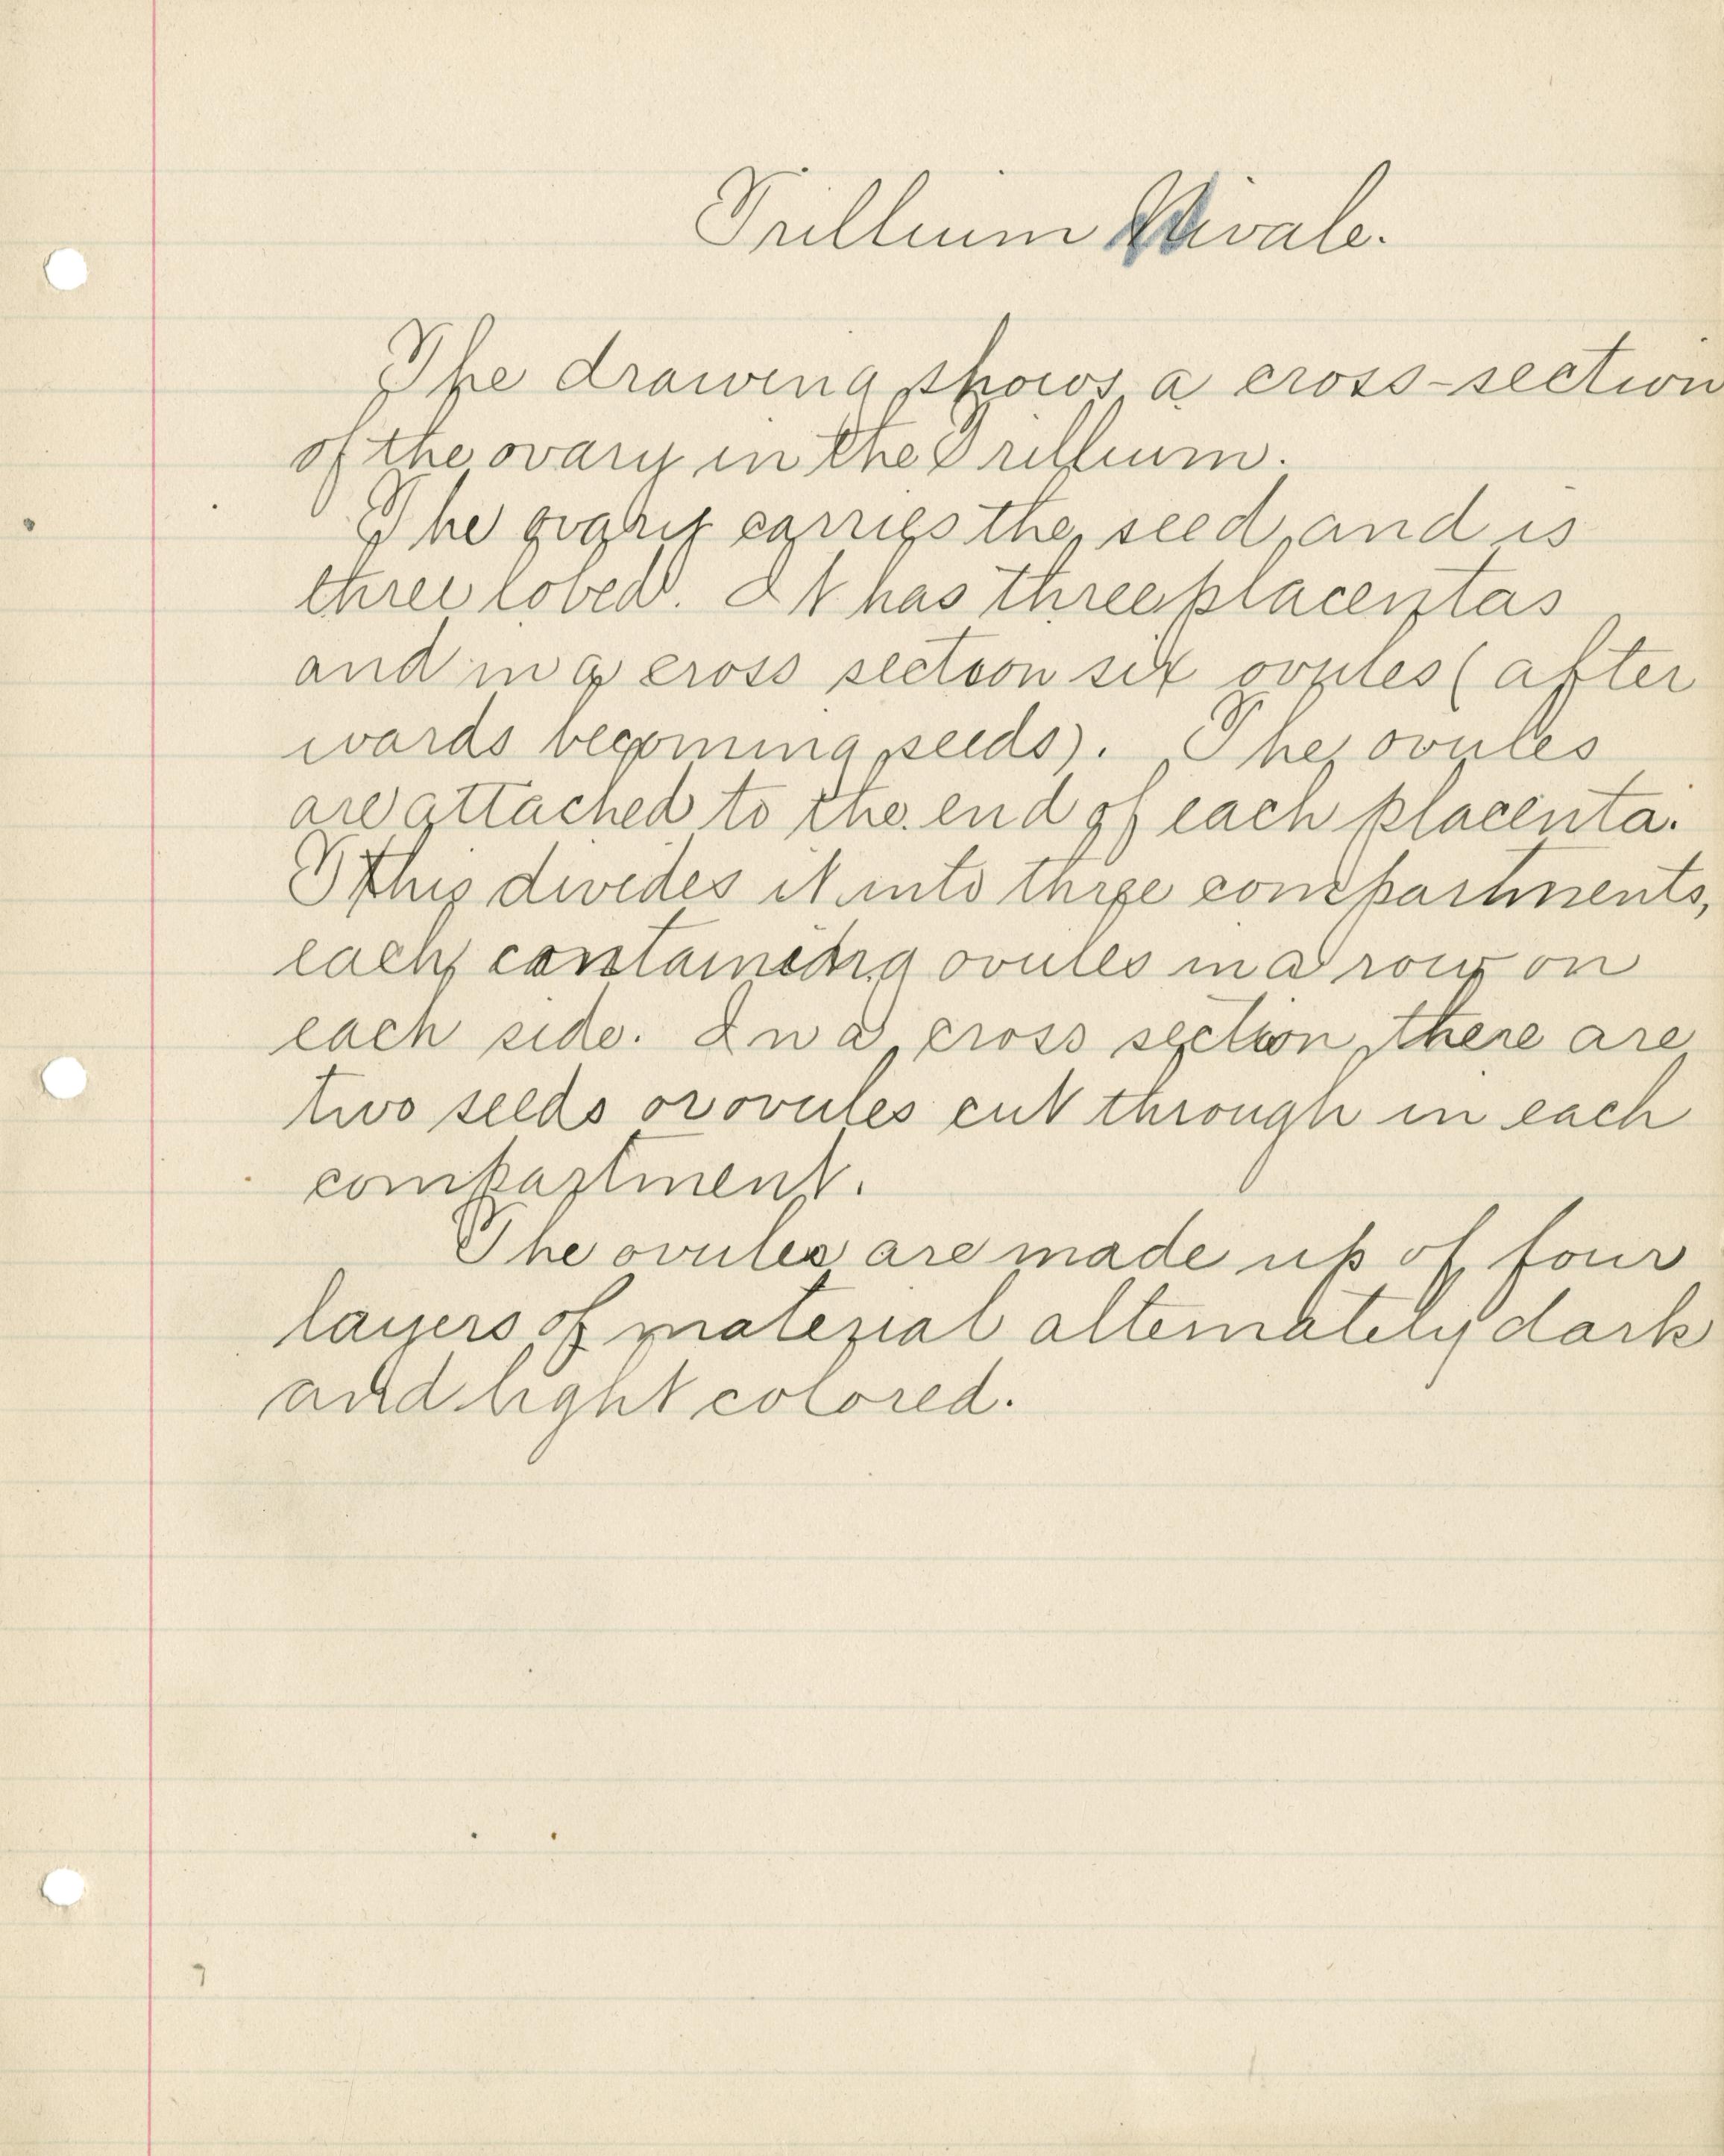 Trillium Nivale.
The drawing shows a cross-section
of the ovary in the Trillium.
The ovary carries the seed and is
three lobed. It has three placentas
and in a cross section six ovules (after
wards becoming seeds). The ovules
are attached to the end of each placenta.
This divides it into three compartments,
each containing ovules in a row on
each side. In a cross section there are
two seeds or ovules cut through in each
compartment.
The ovules are made up of four
layers of material alternately dark
and light colored.